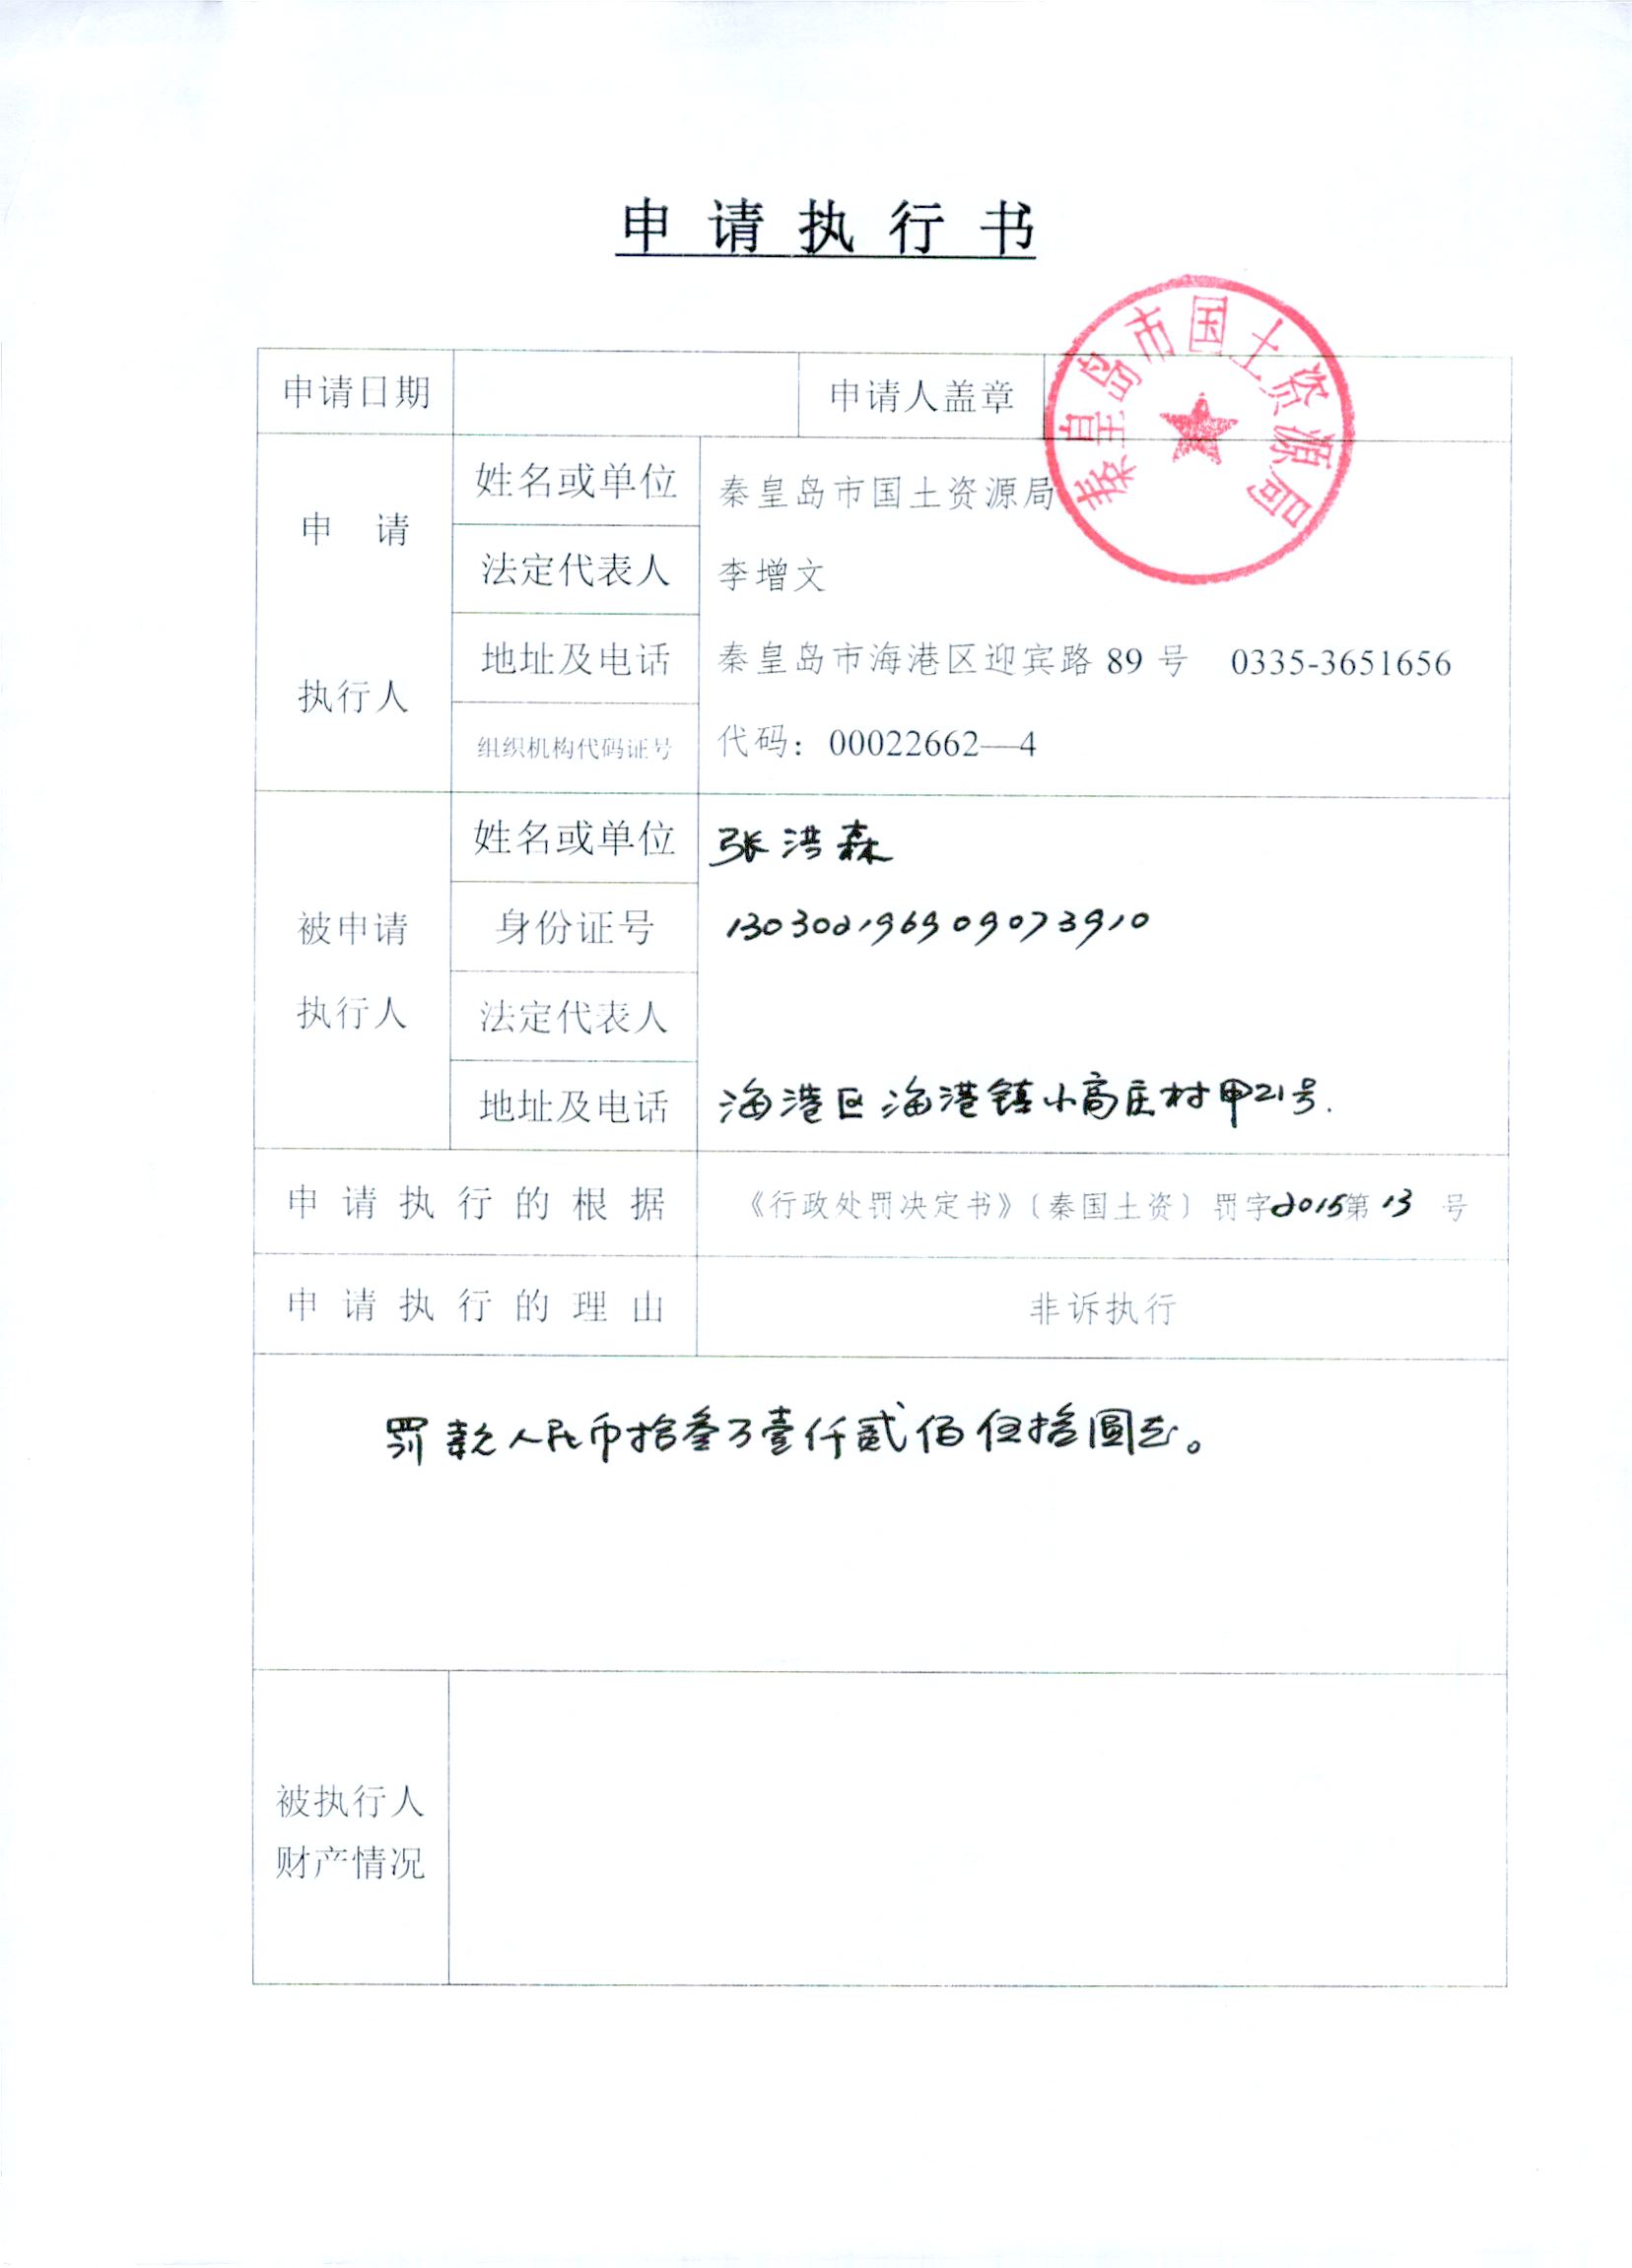 申请执行书
申请日期 申请人盖章
秦皇岛市国土资源局
申请执行人
姓名或单位 秦皇岛市国土资源局
法定代表人 李增文
地址及电话 秦皇岛市海港区迎宾路 89 号 0335-3651656
组织机构代码证号 代码：00022662—4
被申请执行人
姓名或单位 张洪森
身份证号 130302196909073910
法定代表人
地址及电话 海港区海港镇小高庄村甲21号.
申请执行的根据 《行政处罚决定书》〔秦国土资〕罚字2015第 13 号
申请执行的理由 非诉执行
罚款人民币拾叁万壹仟贰佰伍拾圆整。
被执行人
财产情况